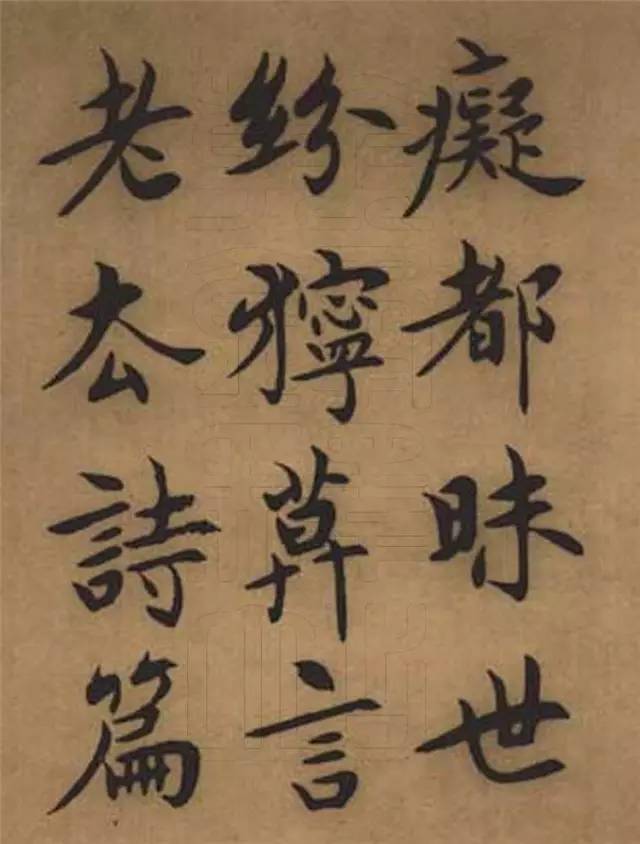 癡都昧世
紛獰莫言
老去詩篇